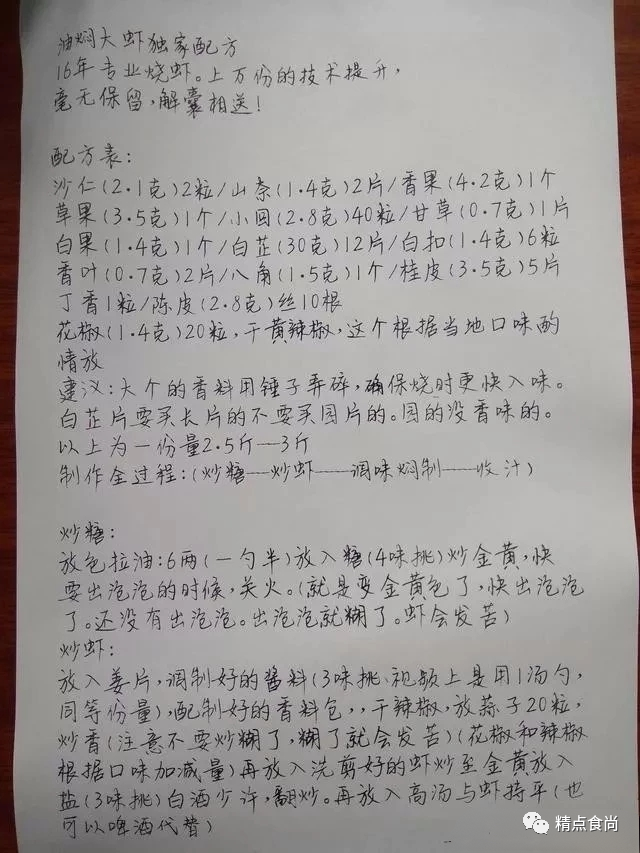 油焖大虾独家配方
16年专业烧虾。上万份的技术提升，
毫无保留，解囊相送！
配方表：
沙仁(2.1克)2粒/山奈(1.4克)2片/香果(4.2克)1个
草果(3.5克)1个/小回(2.8克)40粒/甘草(0.7克)1片
白果(1.4克)1个/白芷(30克)12片/白扣(1.4克)6粒
香叶(0.7克)2片/八角(1.5克)1个/桂皮(3.5克)5片
丁香1粒/陈皮(2.8克)丝10根
花椒(1.4克)20粒，干黄辣椒，这个根据当地口味酌
情放
建议：大个的香料用锤子弄碎，确保烧时更快入味。
白芷片要买长片的不要买园片的。园的没香味的。
以上为一份量2.5斤—3斤
制作全过程：(炒糖—炒虾—调味焖制—收汁)
炒糖：
放色拉油：6两(一勺半)放入糖(4味挑)炒金黄，快
要出泡泡的时候，关火。(就是变金黄色了，快出泡泡
了。还没有出泡泡。出泡泡就糊了。虾会发苦)
炒虾：
放入姜片，调制好的酱料(3味挑、视频上是用1汤勺，
同等份量)，配制好的香料包，，干辣椒，放蒜子20粒，
炒香(注意不要炒糊了，糊了就会发苦)(花椒和辣椒
根据口味加减量)再放入洗剪好的虾炒至金黄放入
盐(3味挑)白酒少许，翻炒。再放入高汤与虾持平(也
可以啤酒代替)
精点食尚